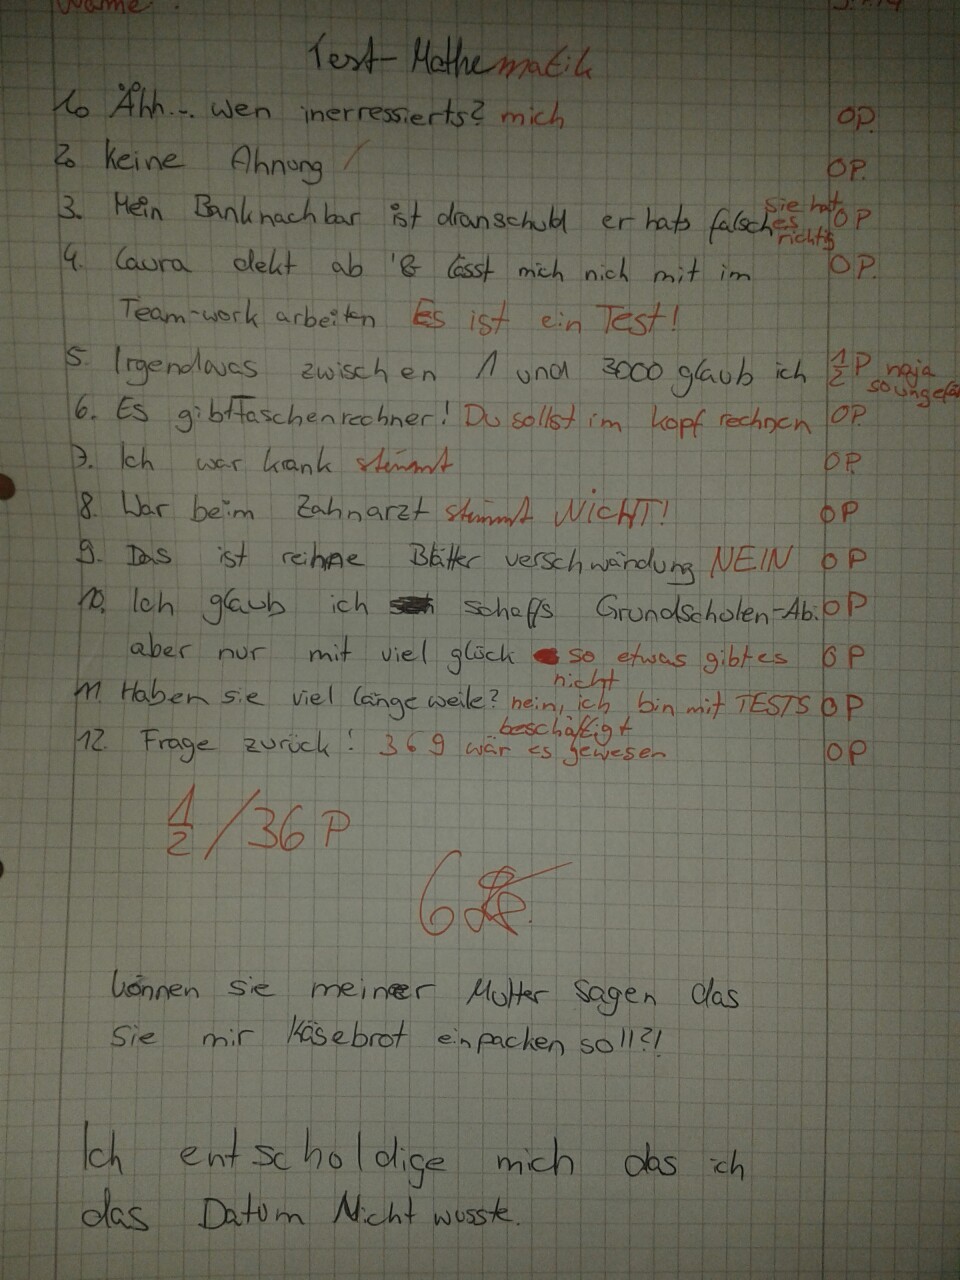 Name
Test-Mathematik
1. Ähh... wen inerressierts? mich 0P.
2. keine Ahnung / 0P.
3. Mein Banknachbar ist dranschuld er hats falsch sie hat es richtig 0P
4. Laura dekt ab & lässt mich nich mit im 0P.
Team-work arbeiten Es ist ein Test!
5. Irgendwas zwischen 1 und 3000 glaub ich 1/2 P naja soungefä
6. Es gibt Taschenrechner! Du sollst im kopf rechnen 0P.
7. Ich war krank stimmt 0P.
8. War beim Zahnarzt stimmt NICHT! 0P
9. Das ist reihne Blätter verschwändung NEIN 0P
10. Ich glaub ich schaffs Grundscholen-Ab. 0P
aber nur mit viel glück so etwas gibt es nicht 0P
11. Haben sie viel längeweile? nein, ich bin mit TESTS beschäftigt 0P
12. Frage zurück! 369 wär es gewesen 0P
1/2 /36 P
6
können sie meiner Mutter sagen das
sie mir Käsebrot einpacken soll?!
Ich entscholdige mich das ich
das Datum Nicht wusste.